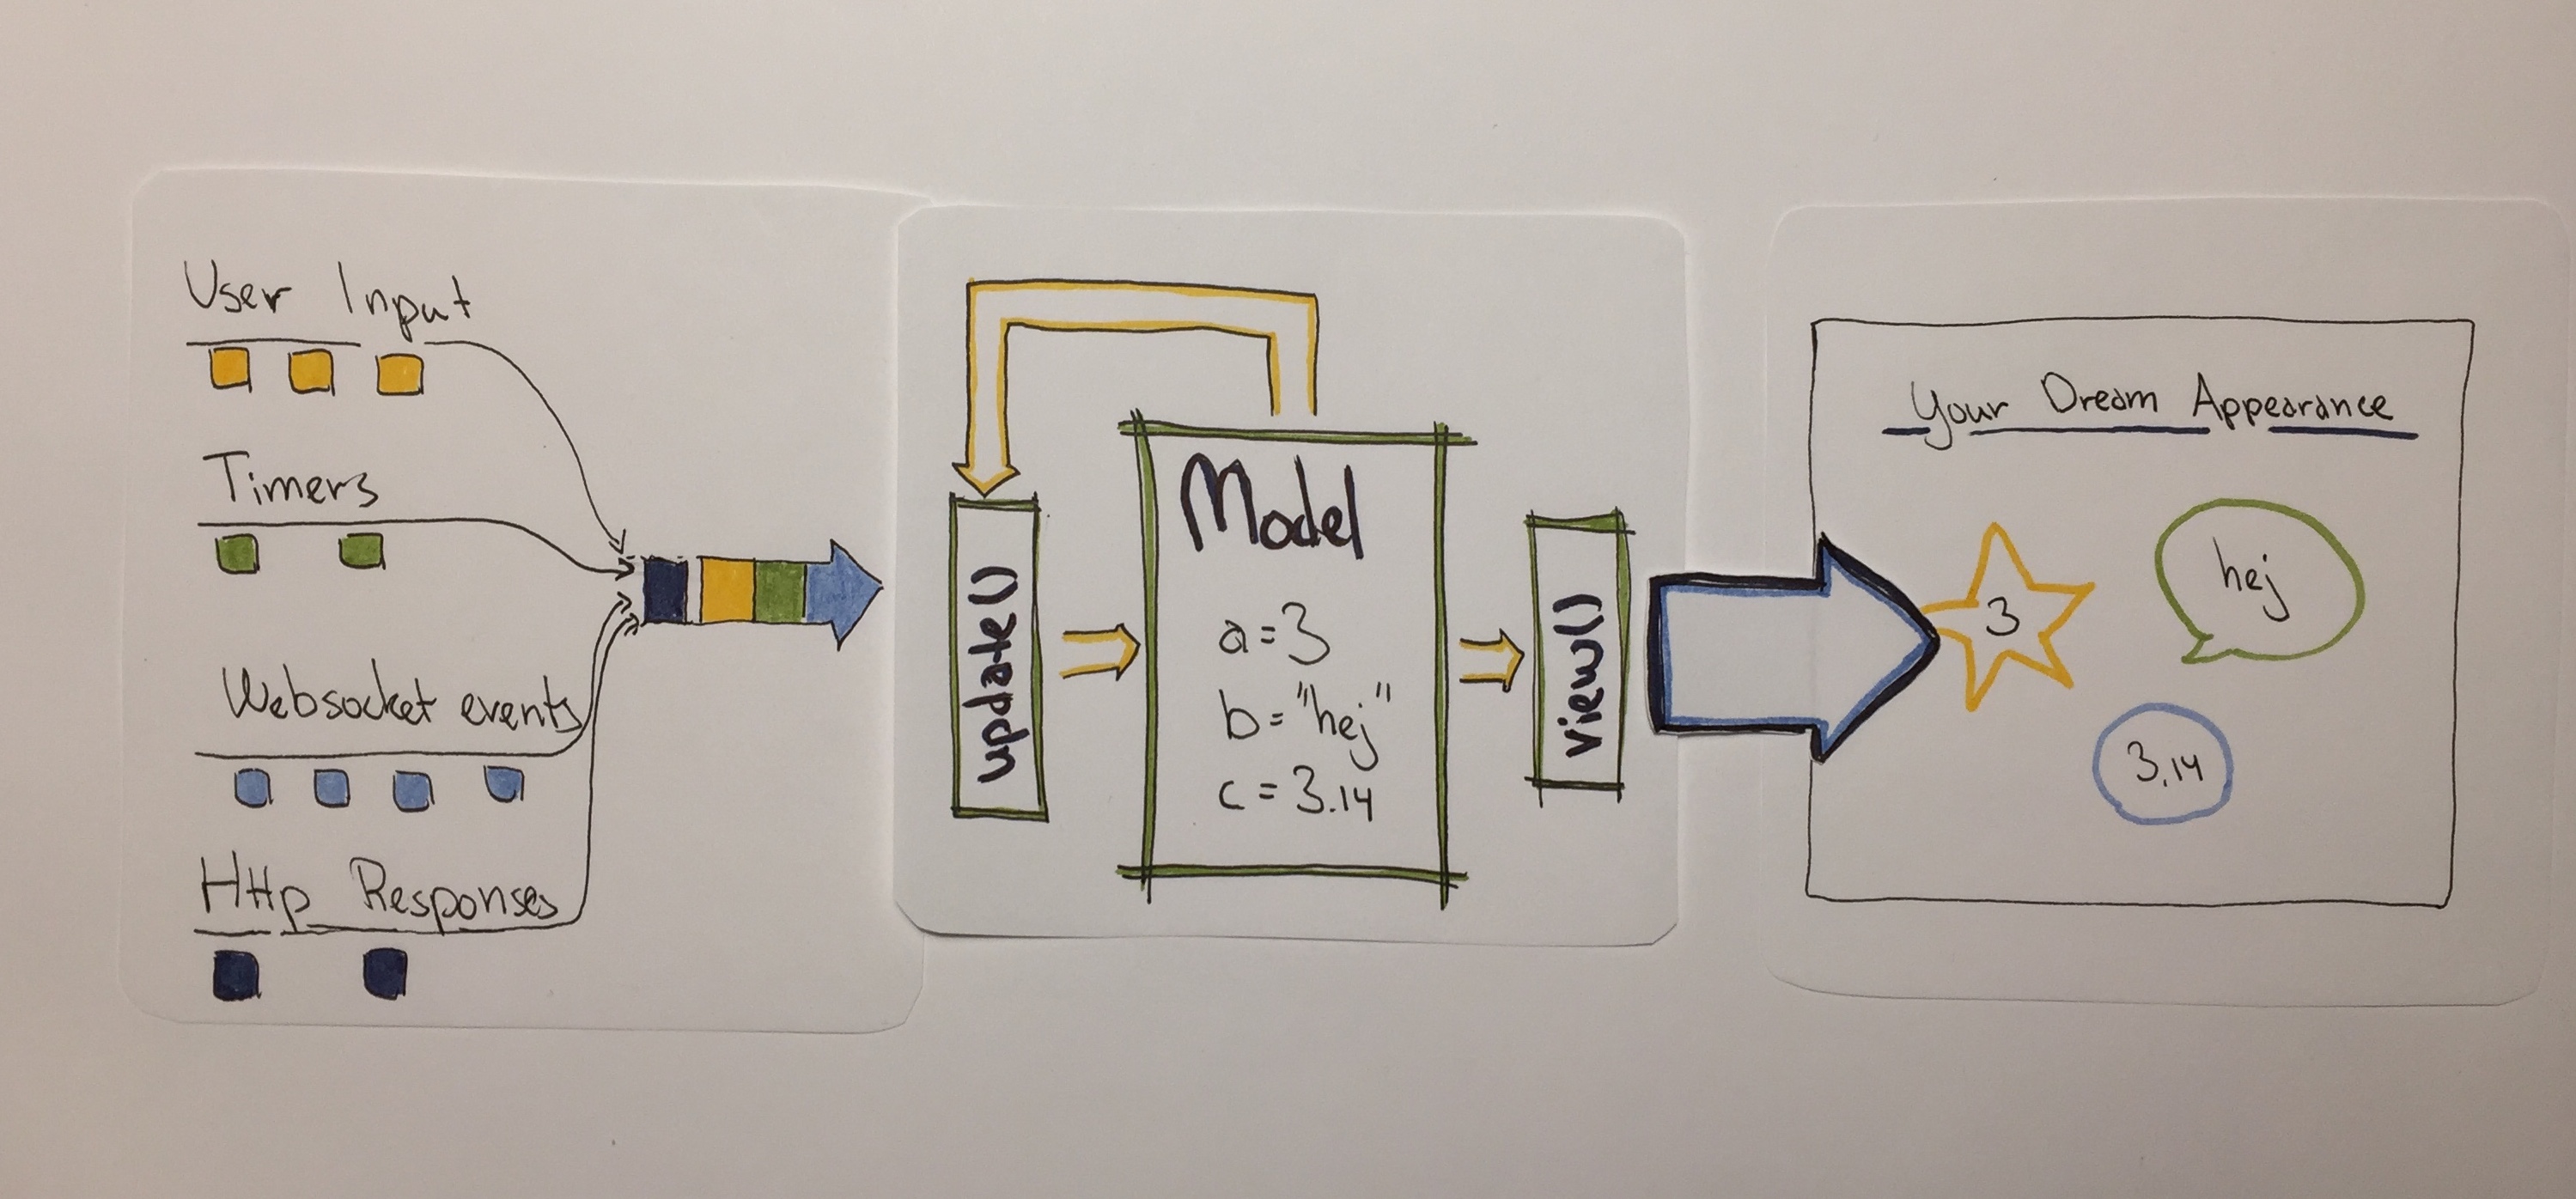 User Input
Timers
Websocket events
Http Responses
update()
Model
a=3
b="hej"
c=3.14
view()
Your Dream Appearance
3
hej
3,14